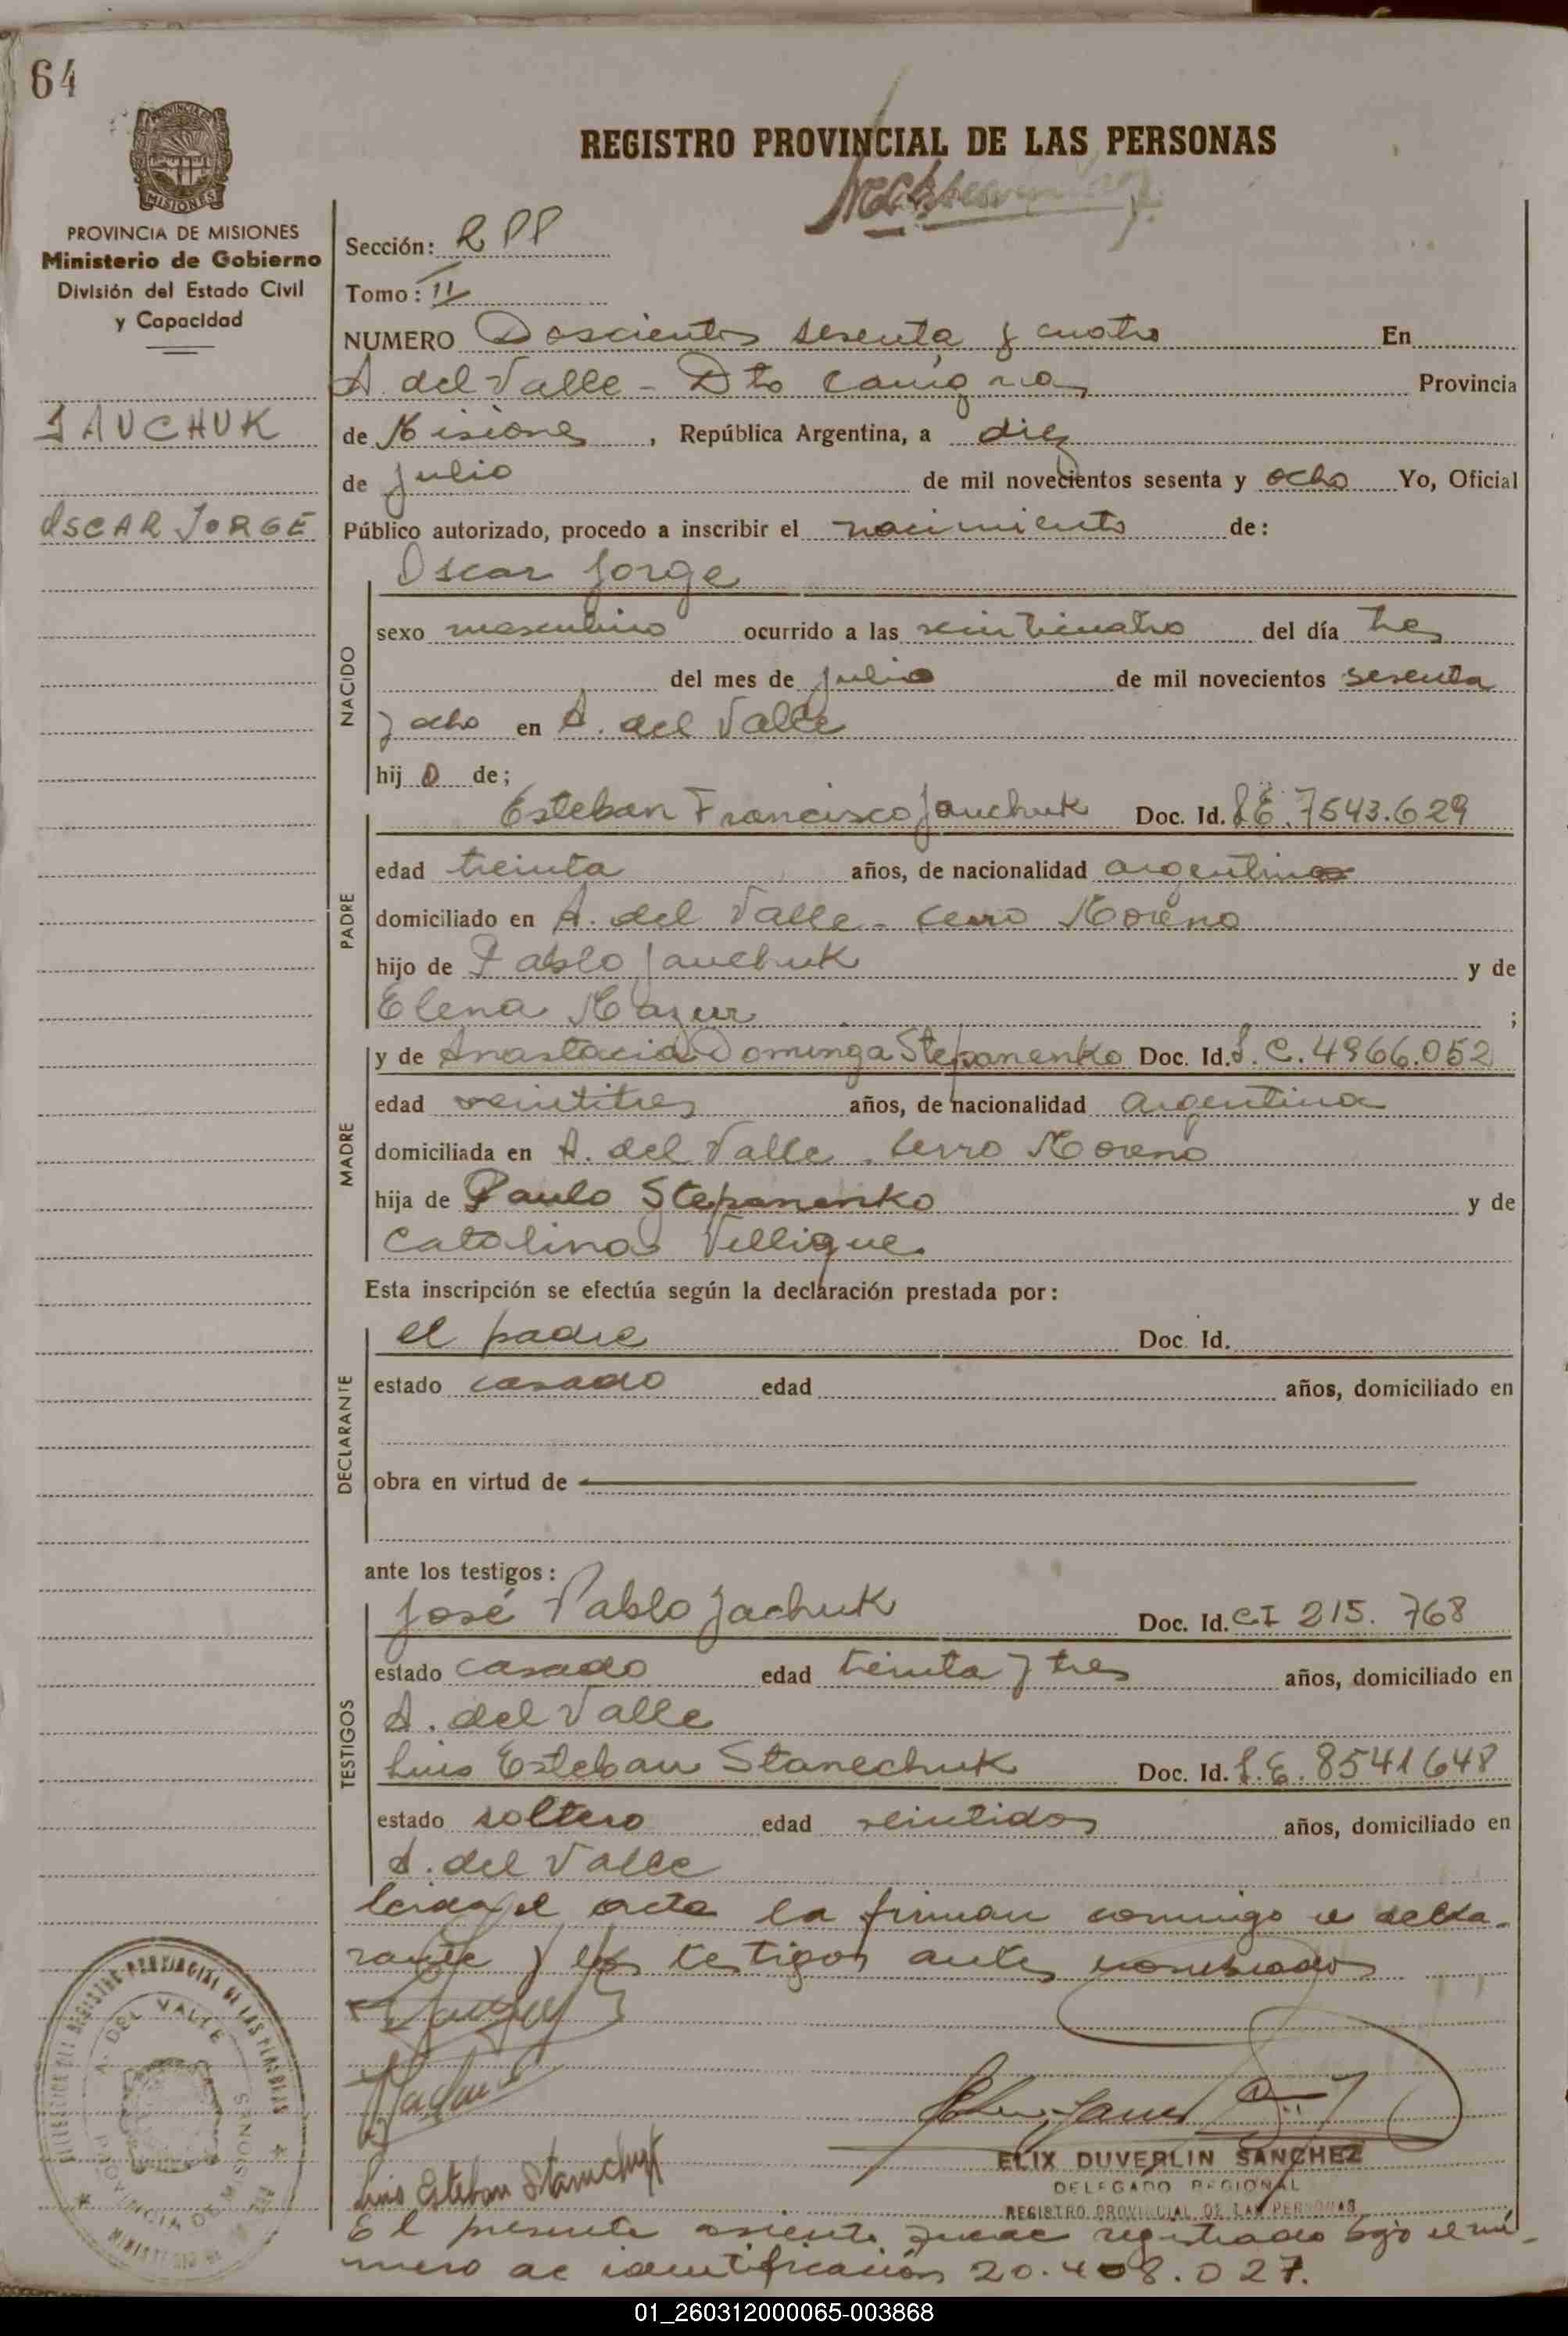 64
REGISTRO PROVINCIAL DE LAS PERSONAS
MISIONES
PROVINCIA DE MISIONES
Ministerio de Gobierno
División del Estado Civil
y Capacidad
JAUCHUK
OSCAR JORGE
Sección: RPP
Tomo: II
NUMERO Doscientos sesenta y cuatro En
A. del Valle - Dto Cainguas Provincia
de Misiones, República Argentina, a diez
de julio de mil novecientos sesenta y ocho Yo, Oficial
Público autorizado, procedo a inscribir el nacimiento de:
Oscar Jorge
NACIDO
sexo masculino ocurrido a las veinticuatro del día tres
del mes de julio de mil novecientos sesenta
y ocho en A. del Valle
hijo de;
PADRE
Esteban Francisco Jauchuk Doc. Id. L.E. 7543.629
edad treinta años, de nacionalidad argentino
domiciliado en A. del Valle - Cerro Moreno
hijo de Pablo Jauchuk y de
Elena Mazur ;
MADRE
y de Anastacia Dominga Stepanenko Doc. Id. L.C. 4966.052
edad veintitres años, de nacionalidad argentina
domiciliada en A. del Valle - Cerro Moreno
hija de Paulo Stepanenko y de
Catalina Villique
Esta inscripción se efectúa según la declaración prestada por:
DECLARANTE
el padre Doc. Id.
estado casado edad años, domiciliado en
obra en virtud de
ante los testigos:
TESTIGOS
José Pablo Jachuk Doc. Id. CI 215.768
estado casado edad treinta y tres años, domiciliado en
A. del Valle
Luis Esteban Stanechuk Doc. Id. L.E. 8541648
estado soltero edad veintidos años, domiciliado en
A. del Valle
leida el acta la firman conmigo el decla-
rante y los testigos antes nombrados
Luis Esteban Stanechuk
ELIX DUVERLIN SANCHEZ
DELEGADO REGIONAL
REGISTRO PROVINCIAL DE LAS PERSONAS
A. DEL VALLE
PROVINCIA DE MISIONES
El presente asiento queda registrado bajo el nú-
mero de identificación 20.408.027.
01_260312000065-003868